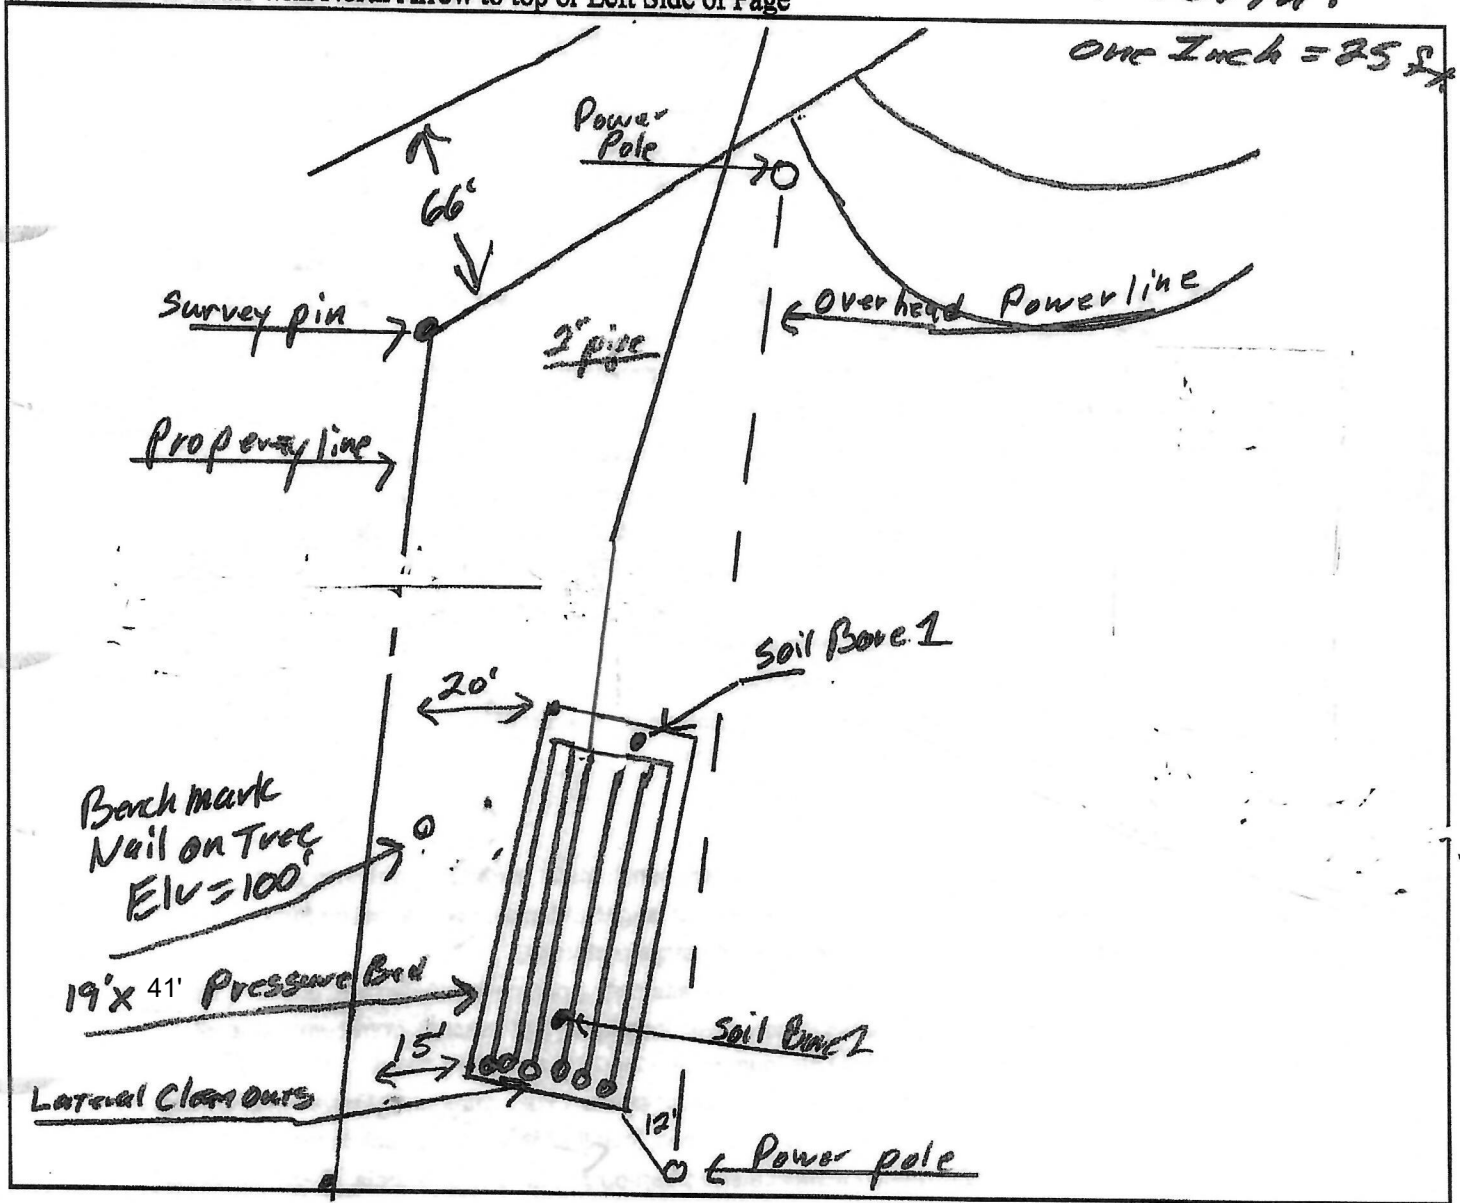 Arrow to top or Left Side of Page
one Inch = 25 ft
Power
Pole
66'
Survey pin
2" pipe
Overhead Powerline
Property line
Soil Bore 1
20'
Benchmark
Nail on Tree
Elv=100'
19'x 41' Pressure Bed
Soil Bore 2
15'
Lateral Clean outs
12'
Power pole